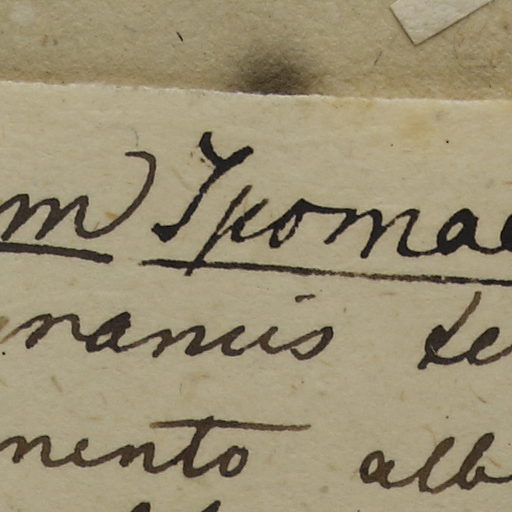 m) Ipomae
raneis te
mento alb